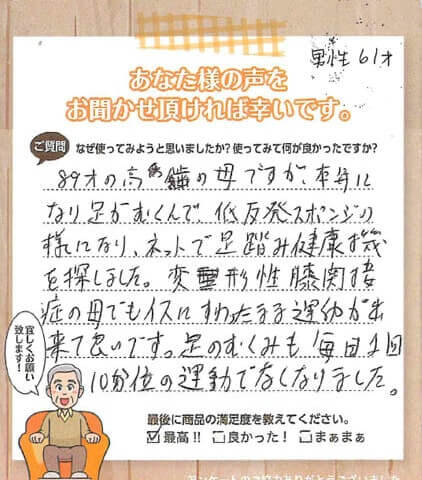 男性 61才
あなた様の声を
お聞かせ頂ければ幸いです。
ご質問 なぜ使ってみようと思いましたか?使ってみて何が良かったですか?
89才の高齢の母ですが、
なり足がむくんで、低反発スポンジの
様になり、ネットで足踏み健康機
を探しました。変形性膝関接
症の母でもイスにすわったまま運動が出
来て良いです。足のむくみも毎日1回
10分位の運動でなくなりました。
宜しくお願い
致します!
最後に商品の満足度を教えてください。
☑最高!! □良かった! □まぁまぁ
アンケートのご協力ありがとうございました